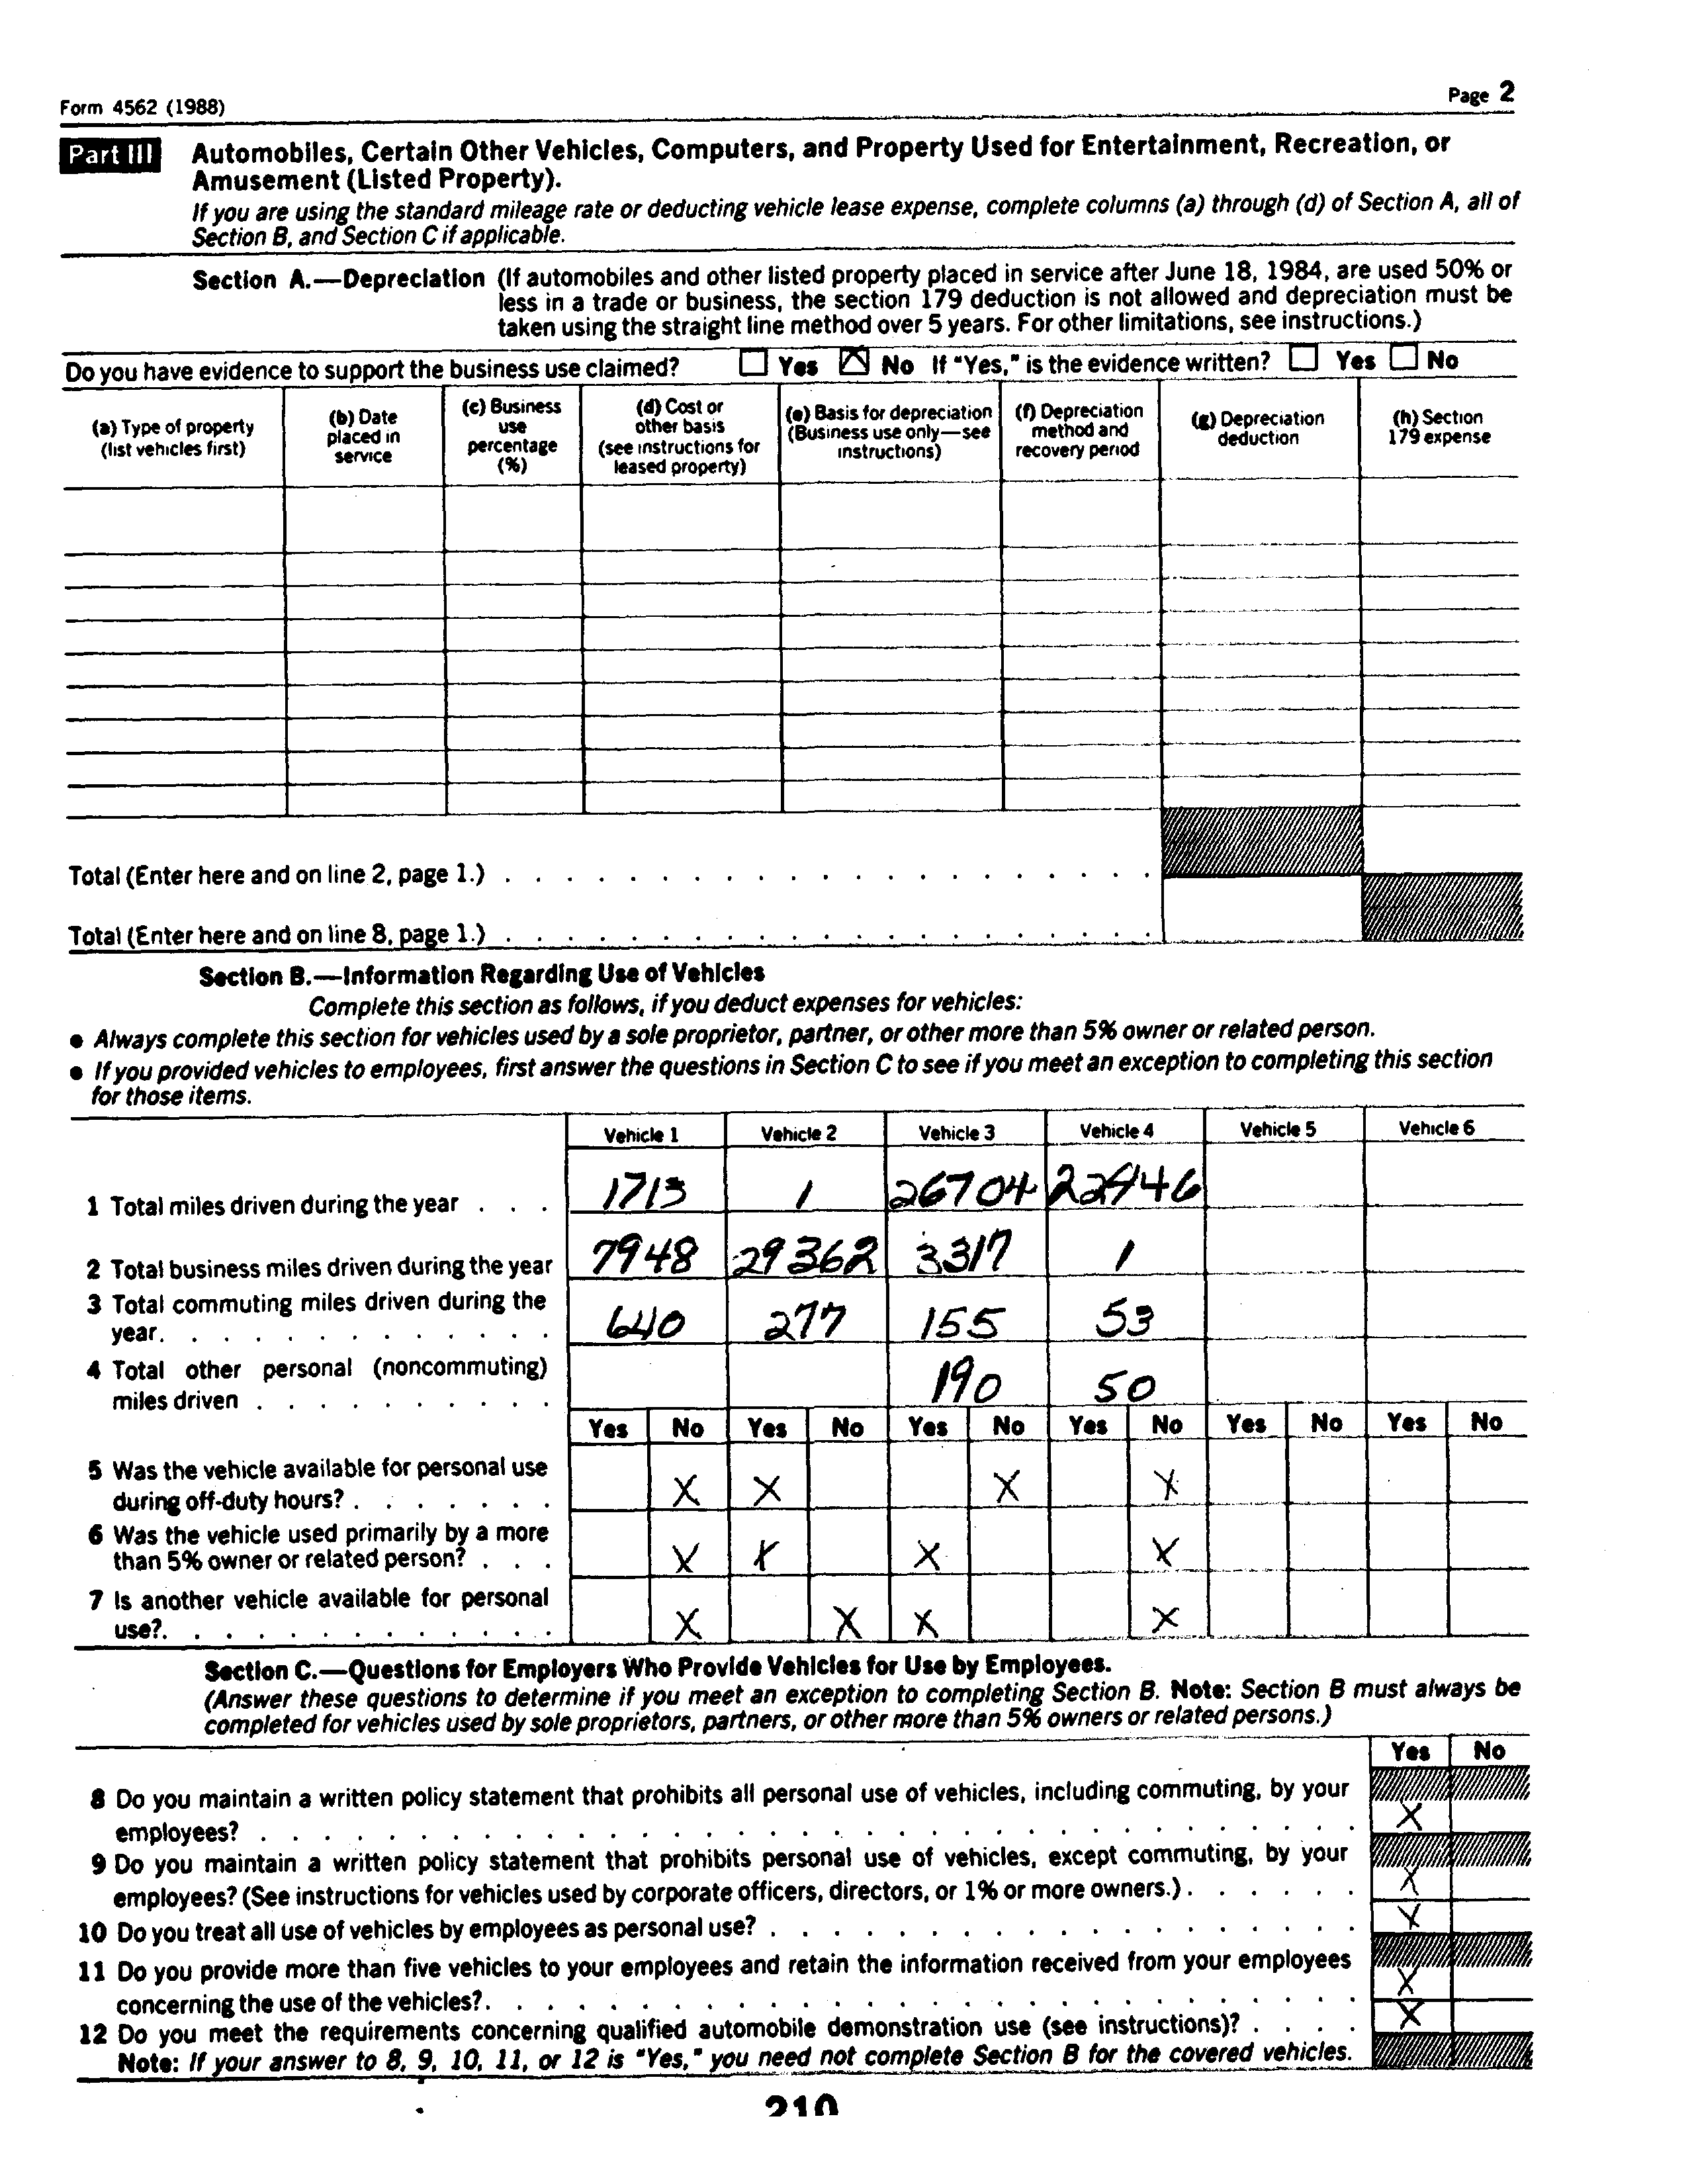 Form 4562 (1988)
Page 2
Part III Automobiles, Certain Other Vehicles, Computers, and Property Used for Entertainment, Recreation, or
Amusement (Listed Property).
If you are using the standard mileage rate or deducting vehicle lease expense, complete columns (a) through (d) of Section A, all of
Section B, and Section C if applicable.
Section A.—Depreciation (If automobiles and other listed property placed in service after June 18, 1984, are used 50% or
less in a trade or business, the section 179 deduction is not allowed and depreciation must be
taken using the straight line method over 5 years. For other limitations, see instructions.)
Do you have evidence to support the business use claimed? Yes X No If "Yes," is the evidence written? Yes No
(a) Type of property
(list vehicles first)
(b) Date
placed in
service
(c) Business
use
percentage
(%)
(d) Cost or
other basis
(see instructions for
leased property)
(e) Basis for depreciation
(Business use only—see
instructions)
(f) Depreciation
method and
recovery period
(g) Depreciation
deduction
(h) Section
179 expense
Total (Enter here and on line 2, page 1.)
Total (Enter here and on line 8, page 1.)
Section B.—Information Regarding Use of Vehicles
Complete this section as follows, if you deduct expenses for vehicles:
● Always complete this section for vehicles used by a sole proprietor, partner, or other more than 5% owner or related person.
● If you provided vehicles to employees, first answer the questions in Section C to see if you meet an exception to completing this section
for those items.
Vehicle 1 Vehicle 2 Vehicle 3 Vehicle 4 Vehicle 5 Vehicle 6
1 Total miles driven during the year . . . 1713 1 26704
2 Total business miles driven during the year 7948 29362 3317 1
3 Total commuting miles driven during the
year. . . . . . . . . . . . . 640 277 155 53
4 Total other personal (noncommuting)
miles driven . . . . . . . . . . 190 50
Yes No Yes No Yes No Yes No Yes No Yes No
5 Was the vehicle available for personal use
during off-duty hours? . . . . . . . X X X X
6 Was the vehicle used primarily by a more
than 5% owner or related person? . . . X X X X
7 Is another vehicle available for personal
use?. . . . . . . . . . . . . X X X X
Section C.—Questions for Employers Who Provide Vehicles for Use by Employees.
(Answer these questions to determine if you meet an exception to completing Section B. Note: Section B must always be
completed for vehicles used by sole proprietors, partners, or other more than 5% owners or related persons.)
Yes No
8 Do you maintain a written policy statement that prohibits all personal use of vehicles, including commuting, by your
employees? X
9 Do you maintain a written policy statement that prohibits personal use of vehicles, except commuting, by your
employees? (See instructions for vehicles used by corporate officers, directors, or 1% or more owners.) . . . . . . X
10 Do you treat all use of vehicles by employees as personal use? X
11 Do you provide more than five vehicles to your employees and retain the information received from your employees
concerning the use of the vehicles?. X
12 Do you meet the requirements concerning qualified automobile demonstration use (see instructions)? . . . . X
Note: If your answer to 8, 9, 10, 11, or 12 is "Yes," you need not complete Section B for the covered vehicles.
210